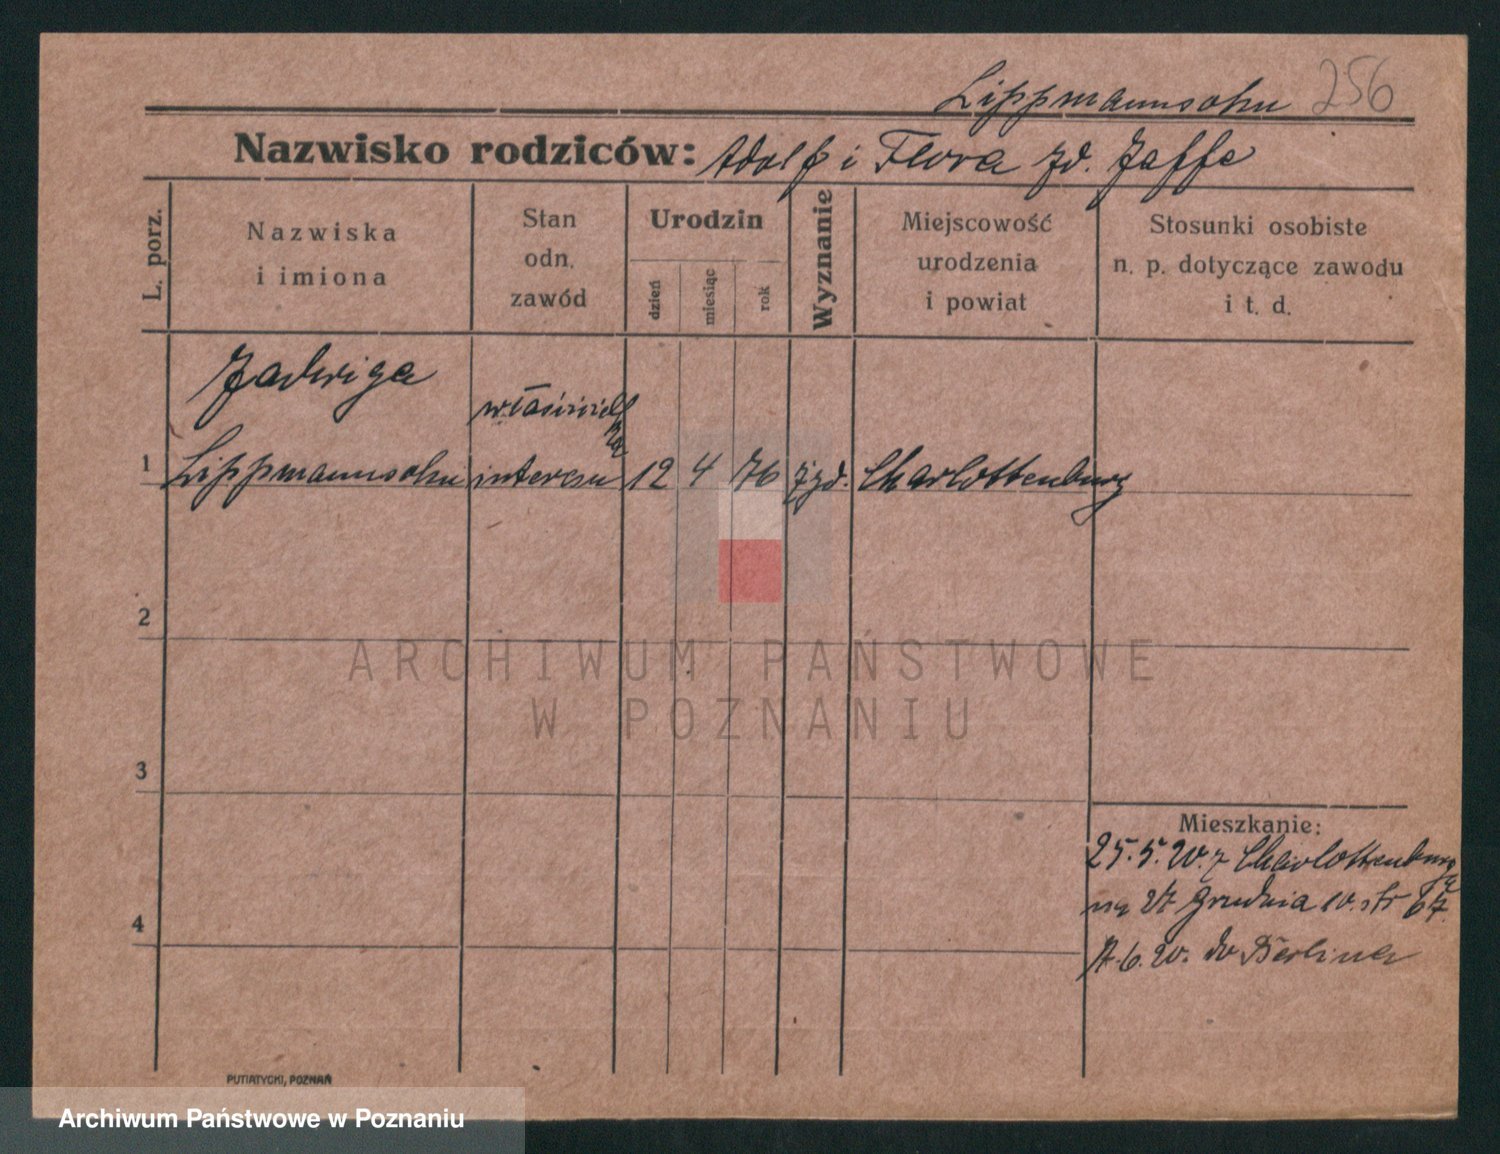 Lippmannsohn 256
Nazwisko rodziców: Adolf i Flora zd. Jaffe
L. porz.
Nazwiska
i imiona
Stan
odn.
zawód
Urodzin
dzień
miesiąc
rok
Wyznanie
Miejscowość
urodzenia
i powiat
Stosunki osobiste
n. p. dotyczące zawodu
i t. d.
Jadwiga
właściciel
ka
1 Lippmannsohn interesu 12 4 76 żyd. Charlottenburg
2
ARCHIWUM PAŃSTWOWE
W POZNANIU
3
Mieszkanie:
25.5.20. z Charlottenburga
na 27 Grudnia 10. str 67.
4
6.20. do Berlina
PUTIATYCKI, POZNAŃ
Archiwum Państwowe w Poznaniu